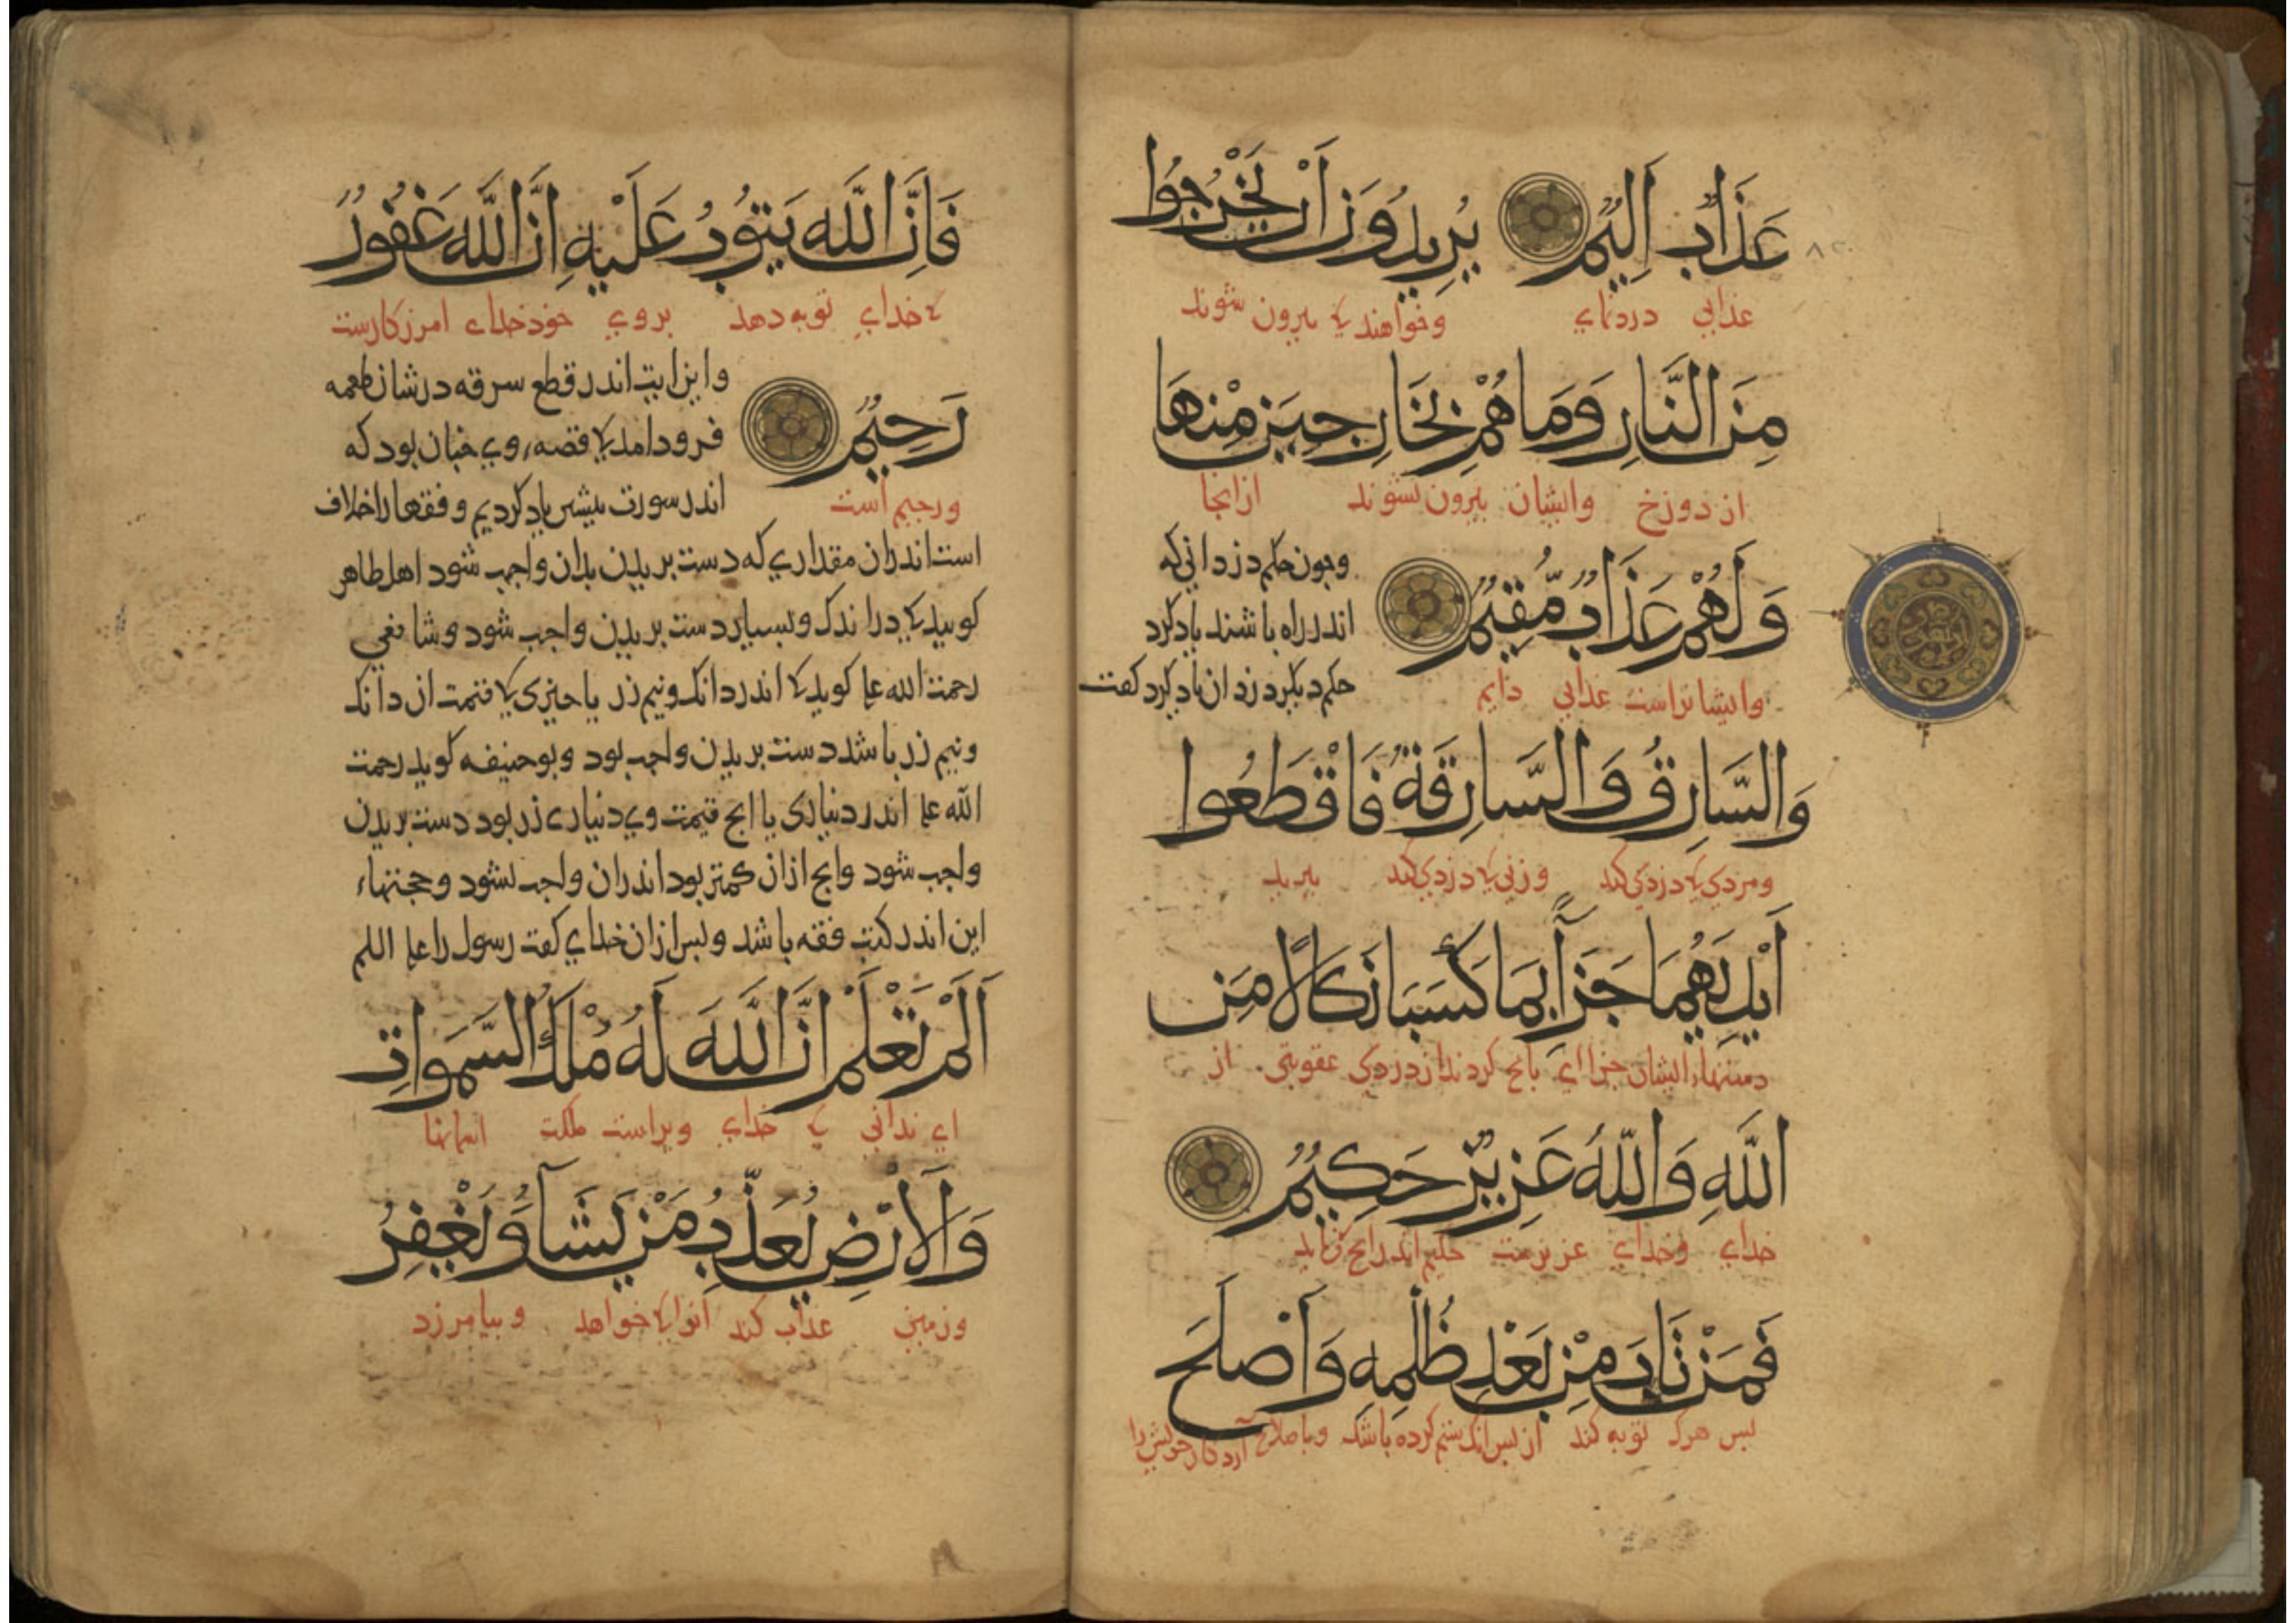 عَذَابٌ اَلِيمٌ يُرِيدُونَ اَنْ يَخْرُجُوا
عذابی دردناک وخواهند کی بیرون شوند
مِنَ النَّارِ وَمَا هُمْ بِخَارِجِينَ مِنْهَا
از دوزخ وایشان بیرون نشوند ازانجا
وَلَهُمْ عَذَابٌ مُّقِيمٌ
وایشانراست عذابی دایم
وجون حکم دزدانی که
اندر راه باشند یاد کرد
حکم دیکر دزدان یاد کرد کفت
وَالسَّارِقُ وَالسَّارِقَةُ فَاقْطَعُوا
ومردی کی دزدی کند وزنی کی دزدی کند ببرید
اَيْدِيَهُمَا جَزَآءً بِمَا كَسَبَا نَكَالًا مِنَ
دستهاء ایشان جزاای بانج کردند از دزدی عقوبتی از
اللَّهِ وَاللَّهُ عَزِيزٌ حَكِيمٌ
خدای وخدای عزیزست حکیم اندرانج
فَمَنْ تَابَ مِنْ بَعْدِ ظُلْمِهِ وَاَصْلَحَ
بس هرک توبه کند از بس انک ستم کرده باشد وباصلاح آرد کار خویش را
فَاِنَّ اللَّهَ يَتُوبُ عَلَيْهِ اِنَّ اللَّهَ غَفُورٌ
کی خدای توبه دهد بروی خود خدای امرزکارست
رَحِيمٌ
ورحیم است
واین ایت اندر قطع سرقه درشان طعمه
فروذ امد کی قصهء وی جنان بود که
اندر سورت بیشین یاد کردیم وفقها را خلاف
است اندران مقداری که دست بریدن بدان واجب شود اهل ظاهر
کویند کی در اندک وبسیار دست بریدن واجب شود وشافعی
رحمت الله علیه کوید کی اندر دانک ونیم زر یا جیزی کی قیمت ان دانک
ونیم زر باشد دست بریدن واجب بود وبوحنیفه کوید رحمت
الله علیه اندر دیناری یا انج قیمت وی دیناری زر بود دست بریدن
واجب شود وانج ازان کمتر بود اندران واجب نشود وحجتهاء
این اندر کتب فقه باشد وبس ازان خدای کفت رسول را علیه السلم
اَلَمْ تَعْلَمْ اَنَّ اللَّهَ لَهُ مُلْكُ السَّمَوَاتِ
ای ندانی کی خدای ویراست ملکت اسمانها
وَالْاَرْضِ يُعَذِّبُ مَنْ يَشَآءُ وَيَغْفِرُ
وزمین عذاب کند انرا کی خواهد وبیامرزد